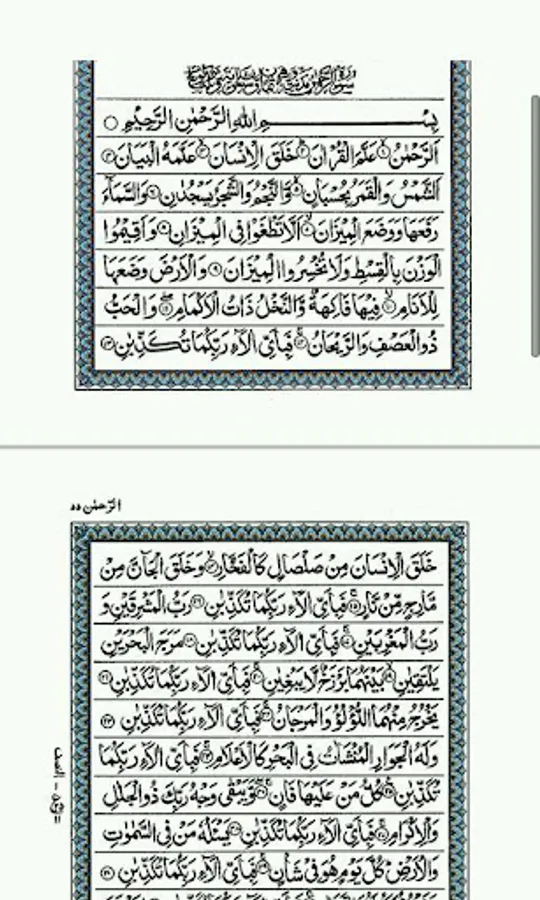 بِسْمِ اللهِ الرَّحْمٰنِ الرَّحِيْمِ
اَلرَّحْمٰنُ ۙ۱ عَلَّمَ الْقُرْاٰنَ ؕ۲ خَلَقَ الْاِنْسَانَ ۙ۳ عَلَّمَهُ الْبَيَانَ ۴
اَلشَّمْسُ وَالْقَمَرُ بِحُسْبَانٍ ۪۵ وَّالنَّجْمُ وَالشَّجَرُ يَسْجُدٰنِ ۶ وَالسَّمَآءَ
رَفَعَهَا وَوَضَعَ الْمِيْزَانَ ۙ۷ اَلَّا تَطْغَوْا فِى الْمِيْزَانِ ۸ وَاَقِيْمُوا
الْوَزْنَ بِالْقِسْطِ وَلَا تُخْسِرُوا الْمِيْزَانَ ۹ وَالْاَرْضَ وَضَعَهَا
لِلْاَنَامِ ۙ۱۰ فِيْهَا فَاكِهَةٌ وَّالنَّخْلُ ذَاتُ الْاَكْمَامِ ۖ۱۱ وَالْحَبُّ
ذُو الْعَصْفِ وَالرَّيْحَانُ ۚ۱۲ فَبِاَىِّ اٰلَآءِ رَبِّكُمَا تُكَذِّبٰنِ ۱۳
الرّحمٰن ۵۵
خَلَقَ الْاِنْسَانَ مِنْ صَلْصَالٍ كَالْفَخَّارِ ۙ۱۴ وَخَلَقَ الْجَآنَّ مِنْ
مَّارِجٍ مِّنْ نَّارٍ ۚ۱۵ فَبِاَىِّ اٰلَآءِ رَبِّكُمَا تُكَذِّبٰنِ ۱۶ رَبُّ الْمَشْرِقَيْنِ وَ
رَبُّ الْمَغْرِبَيْنِ ۚ۱۷ فَبِاَىِّ اٰلَآءِ رَبِّكُمَا تُكَذِّبٰنِ ۱۸ مَرَجَ الْبَحْرَيْنِ
يَلْتَقِيٰنِ ۙ۱۹ بَيْنَهُمَا بَرْزَخٌ لَّا يَبْغِيٰنِ ۚ۲۰ فَبِاَىِّ اٰلَآءِ رَبِّكُمَا تُكَذِّبٰنِ ۲۱
يَخْرُجُ مِنْهُمَا اللُّؤْلُؤُ وَالْمَرْجَانُ ۚ۲۲ فَبِاَىِّ اٰلَآءِ رَبِّكُمَا تُكَذِّبٰنِ ۲۳
وَلَهُ الْجَوَارِ الْمُنْشَاٰتُ فِى الْبَحْرِ كَالْاَعْلَامِ ۚ۲۴ فَبِاَىِّ اٰلَآءِ رَبِّكُمَا
تُكَذِّبٰنِ ۲۵ كُلُّ مَنْ عَلَيْهَا فَانٍ ۚ۲۶ وَّيَبْقٰى وَجْهُ رَبِّكَ ذُو الْجَلٰلِ
وَالْاِكْرَامِ ۚ۲۷ فَبِاَىِّ اٰلَآءِ رَبِّكُمَا تُكَذِّبٰنِ ۲۸ يَسْئَلُهٗ مَنْ فِى السَّمٰوٰتِ
وَالْاَرْضِ كُلَّ يَوْمٍ هُوَ فِىْ شَاْنٍ ۚ۲۹ فَبِاَىِّ اٰلَآءِ رَبِّكُمَا تُكَذِّبٰنِ ۳۰